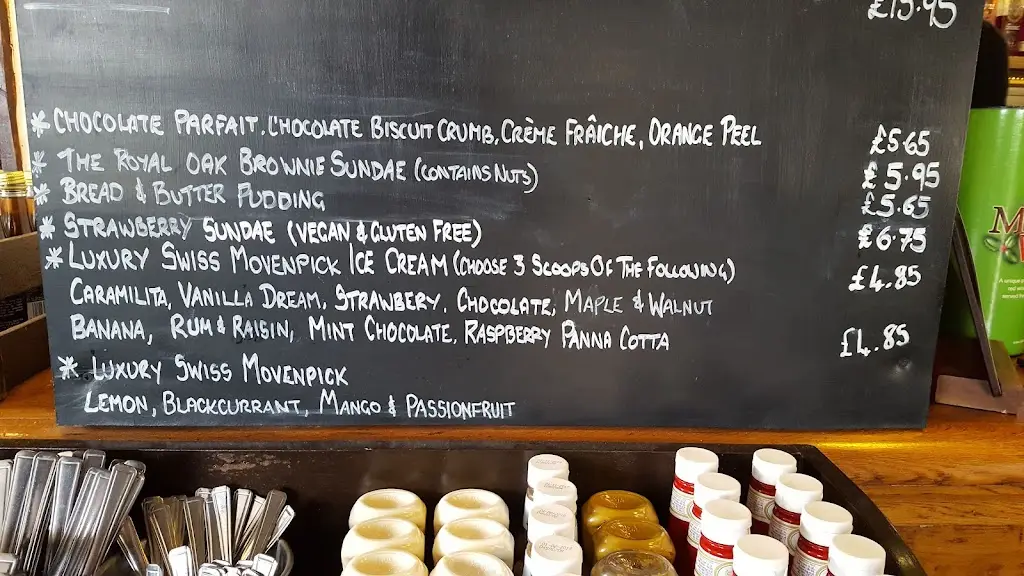 £15.95
*CHOCOLATE PARFAIT, CHOCOLATE BISCUIT CRUMB, CRÈME FRÂICHE, ORANGE PEEL £5.65
*THE ROYAL OAK BROWNIE SUNDAE (CONTAINS NUTS) £5.95
*BREAD & BUTTER PUDDING £5.65
*STRAWBERRY SUNDAE (VEGAN & GLUTEN FREE) £6.75
*LUXURY SWISS MOVENPICK ICE CREAM (CHOOSE 3 SCOOPS OF THE FOLLOWING) £4.85
CARAMILITA, VANILLA DREAM, STRAWBERY, CHOCOLATE, MAPLE & WALNUT
BANANA, RUM & RAISIN, MINT CHOCOLATE, RASPBERRY PANNA COTTA £4.85
*LUXURY SWISS MOVENPICK
LEMON, BLACKCURRANT, MANGO & PASSIONFRUIT